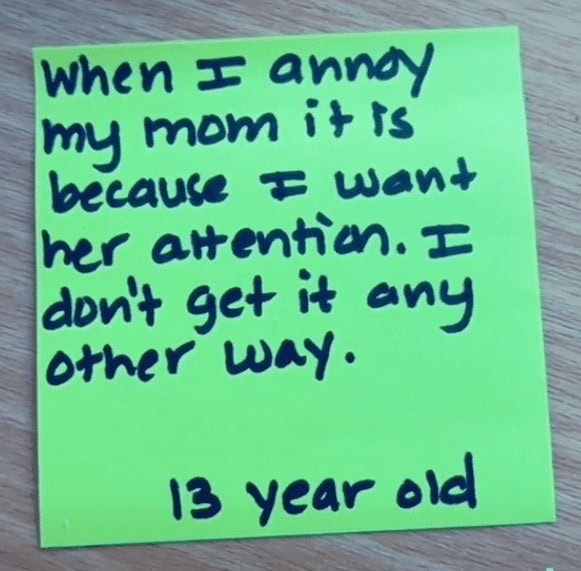 When I annoy
my mom it is
because I want
her attention. I
don't get it any
other way.
13 year old